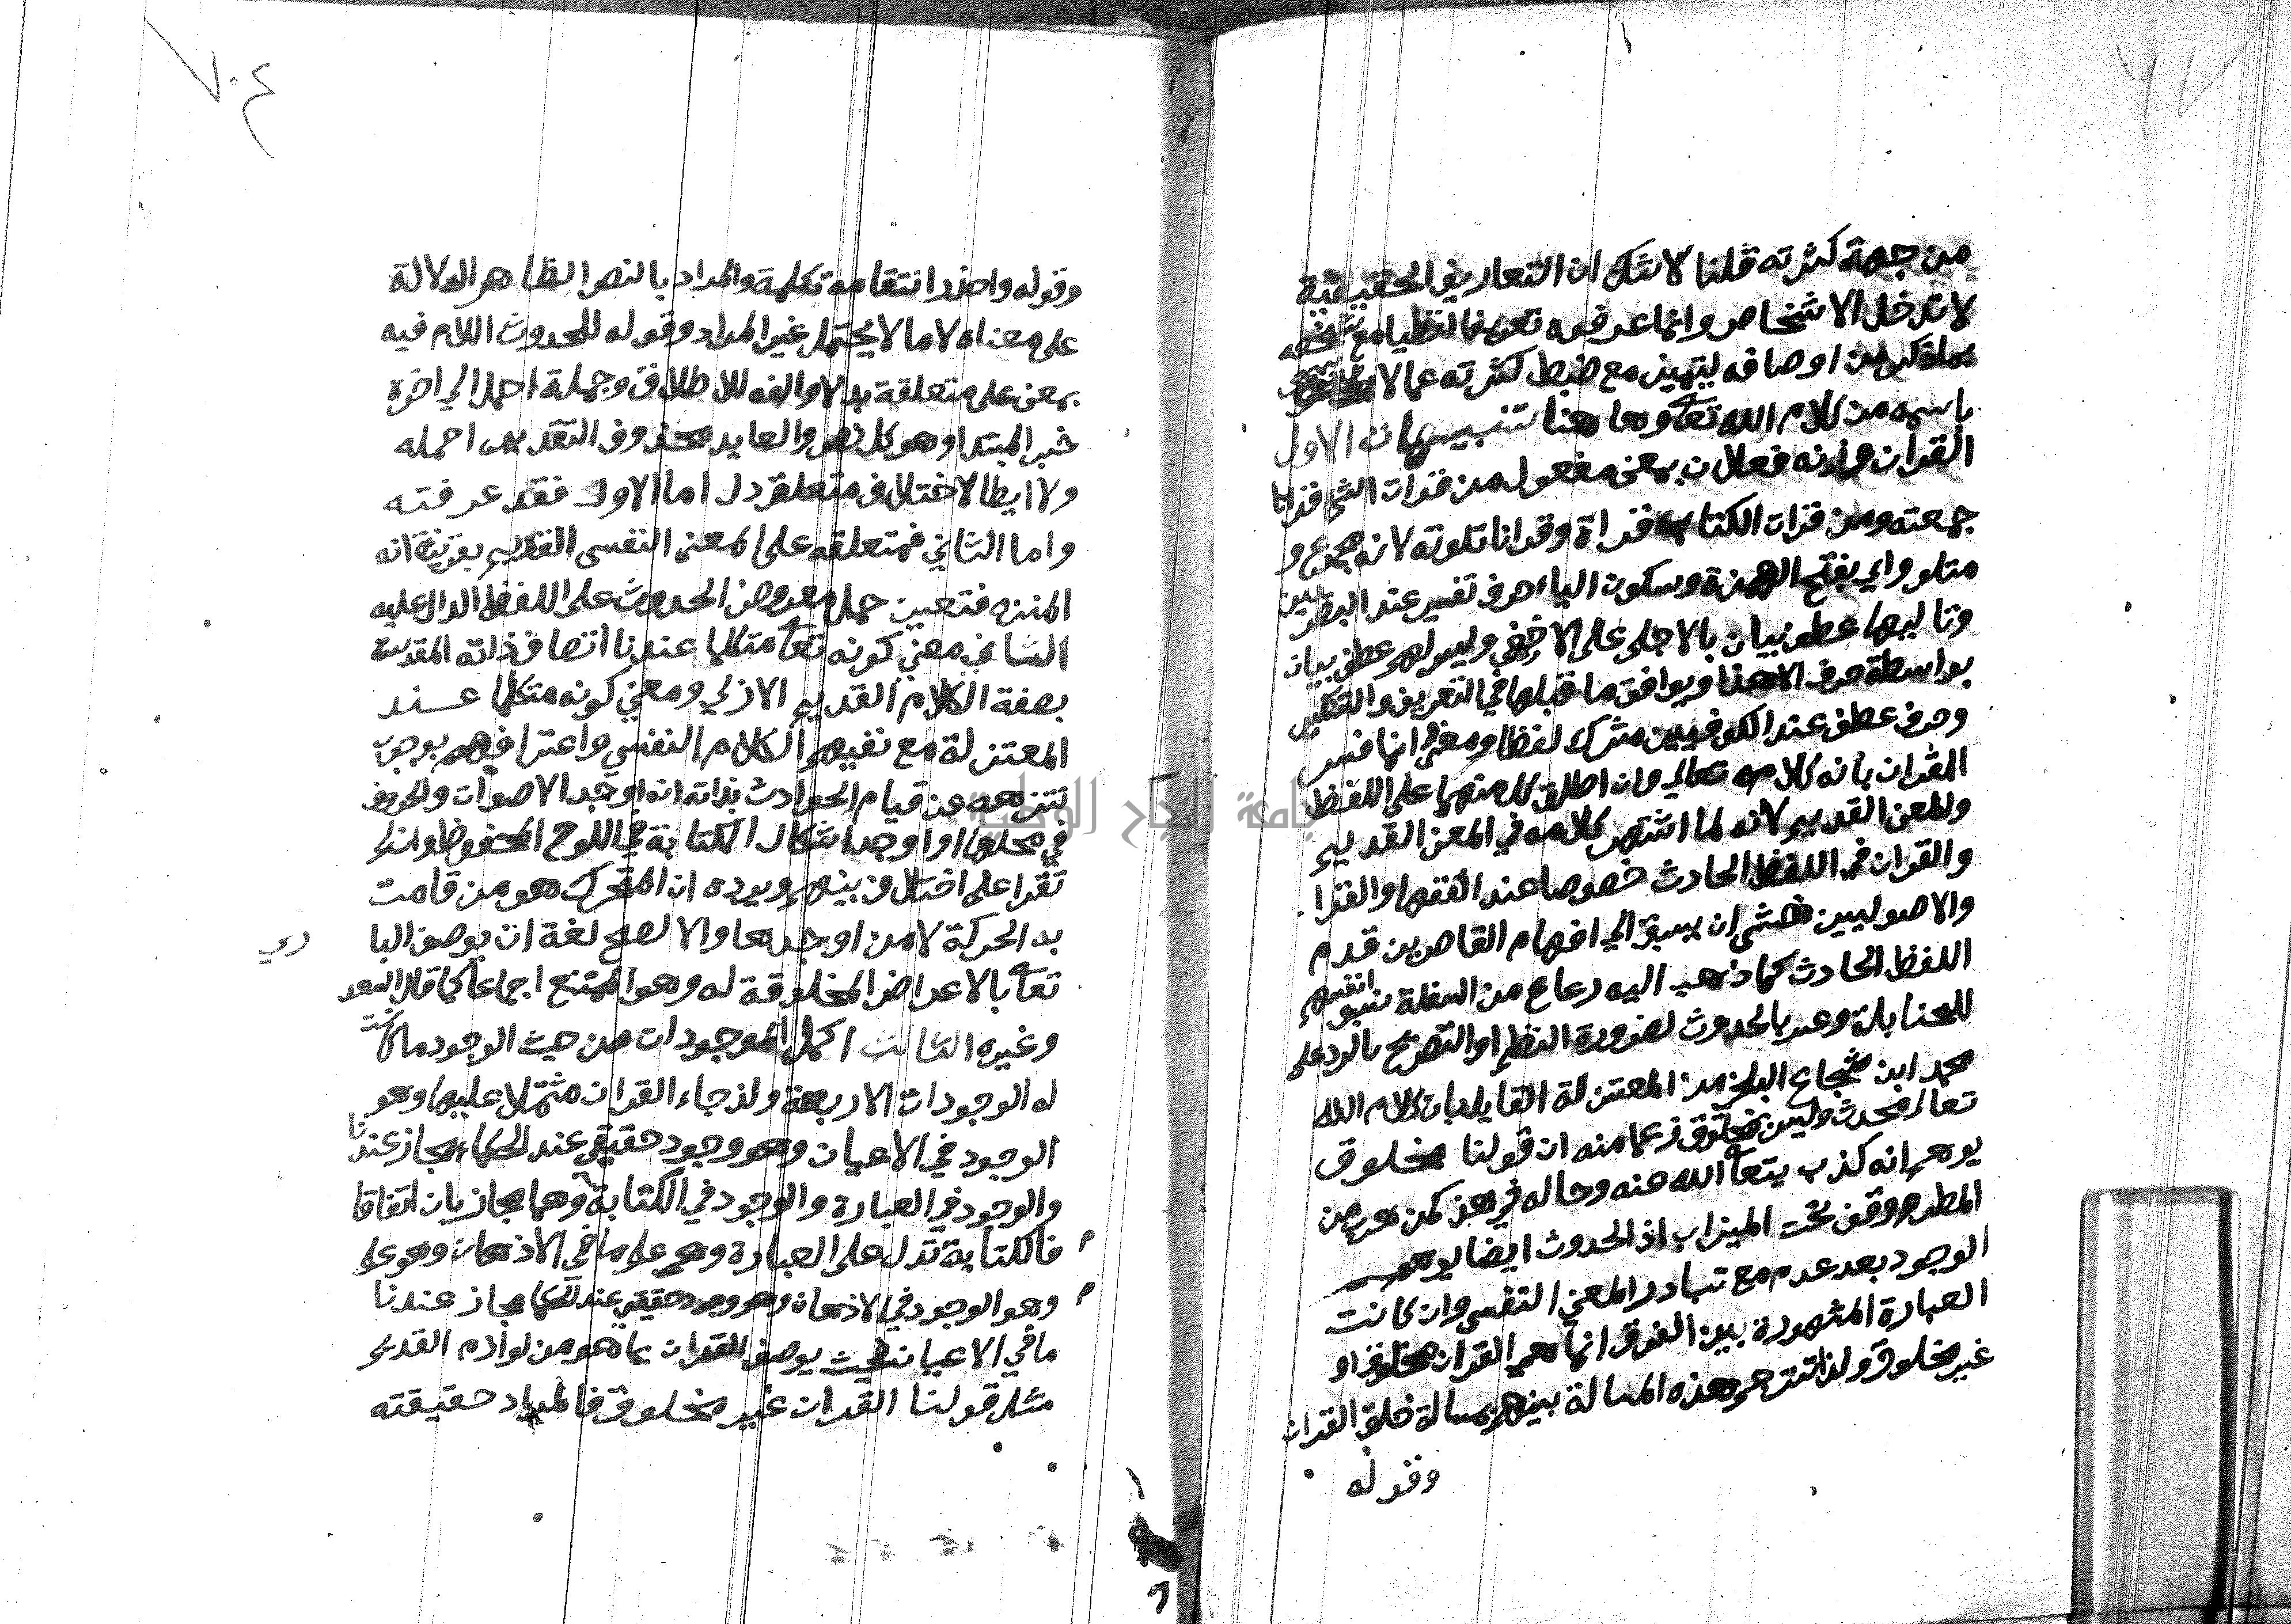 من جهة كثرته قلنا لا شك ان التعاريف الحقيقية
لا تدخل الاشخاص وانما عرفوه تعريفا لفظيا مع تشخصه
بما ذكر من اوصافه ليتميز مع ضبط كثرته عما لا
باسمه من كلام الله تعا وهاهنا تنبيهات الاول
القران وزنه فعلان بمعنى مفعول من قرات الشئ قرانا
جمعته ومن قرات الكتاب قراة وقرانا تلوته لانه مجموع و
متلو واي بفتح الهمزة وسكون الياء حرف تفسير عند البصريين
وتاليها عطف بيان بالاجلى على الاخفى وليس لهم عطف بيان
بواسطة حرف الا هذا ويوافق ما قبلها في التعريف والتنكير
وحرف عطف عند الكوفيين مشرك لفظا ومعنى وانما فسر
القران بانه كلامه تعالى وان اطلق كل منهما على اللفظ
والمعنى القديم لانه لما اشتهر كلامه في المعنى القديم
والقران في اللفظ الحادث خصوصا عند الفقها والقرا
والاصوليين خشي ان يسبق الى افهام القاصرين قدم
اللفظ الحادث كما ذهب اليه رعاع من السفلة نسبوا انفسهم
للحنابلة وعبر بالحدوث لضرورة النظم او التصريح بالرد على
محمد ابن شجاع البلخي من المعتزلة القايل بان كلام الله
تعالى محدث وليس بمخلوق زعما منه ان قولنا مخلوق
يوهم انه كذب يتعا الله عنه وحاله في هذا كمن هرب من
المطر ووقف تحت الميزاب اذ الحدوث ايضا يوهم
الوجود بعد عدم مع تبادر المعنى النفسي وان كانت
العبارة المشهورة بين الفرق انما هي القران مخلوق او
غير مخلوق ولذا تترجم هذه المسالة بينهم بمسالة خلق القران
وقوله
٧٠٤
وقوله واحذر انتقامه تكملة والمراد بالنص الظاهر الدلالة
على معناه لا ما لا يحتمل غير المراد وقوله للحدوث اللام فيه
بمعنى على متعلقة بدلا والفه للاطلاق وجملة احمل الى اخره
خبر المبتدا وهو كل نص والعايد محذوف التقدير احمله
ولا ايطا لاختلاف متعلق دل اما الاول فقد عرفته
واما الثاني فمتعلقه على المعنى النفسي القديم بقرينة انه
المنزه فتعين حمل معروض الحدوث على اللفظ الدال عليه
الثاني معنى كونه تعا متكلما عندنا اتصاف ذاته المقدسة
بصفة الكلام القديم الازلي ومعنى كونه متكلما عند
المعتزلة مع نفيهم الكلام النفسي واعترافهم بوجوب
تنزهه عن قيام الحوادث بذاته انه اوجد الاصوات والحروف
في محلها او اوجد اشكال الكتابة في اللوح المحفوظ وان لم
تقرا على اختلاف بينهم ويرده ان المتحرك هو من قامت
به الحركة لا من اوجدها والا لصح لغة ان يوصف البا
ري
تعا بالاعراض المخلوقة له وهو ممتنع اجماعا كما قال السعد
وغيره الثالث اكمل الموجودات من حيث الوجود ما كانت
له الوجودات الاربعة ولذ جاء القران مشتملا عليها وهو
الوجود في الاعيان وهو وجود حقيقي عند الحكماء مجاز عندنا
والوجود في العبارة والوجود في الكتابة وهما مجازيان اتفاقا
فالكتابة تدل على العبارة وهي على ما في الاذهان وهو على
وهو الوجود في الاذهان وهو وجود حقيقي عند الحكما مجاز عندنا
ما في الاعيان فحيث يوصف القران بما هو من لوازم القديم
مثل قولنا القران غير مخلوق فالمراد حقيقته
جامعة النجاح الوطنية